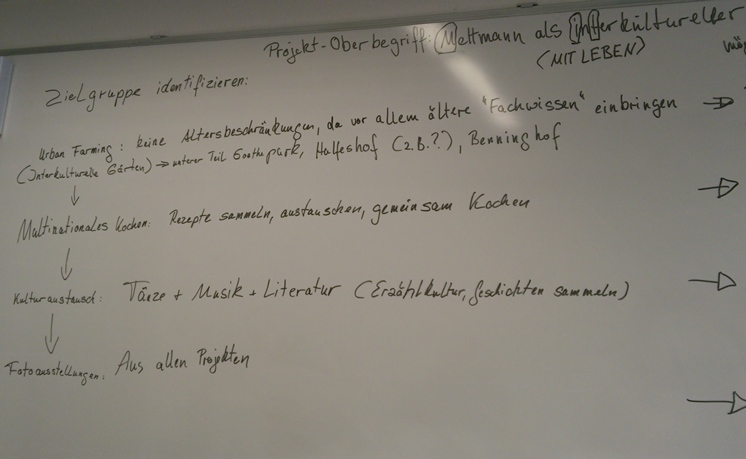 Projekt-Oberbegriff: Mettmann als interkultureller
(MIT LEBEN)
Zielgruppe identifizieren:
Urban Farming: keine Altersbeschränkungen, da vor allem ältere "Fachwissen" einbringen →
(Interkulturelle Gärten) → unterer Teil Goethepark, Halfeshof (z.B.?), Benninghof
↓
Multinationales Kochen: Rezepte sammeln, austauschen, gemeinsam Kochen →
↓
Kulturaustausch: Tänze + Musik + Literatur (Erzählkultur, Geschichten sammeln) →
↓
Fotoausstellungen: Aus allen Projekten →